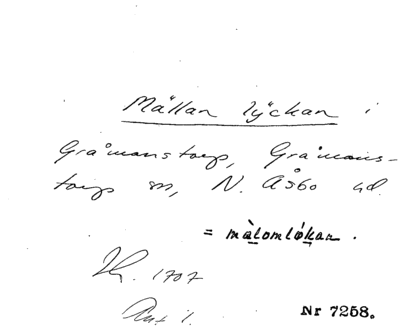 Mällan lÿckan i
Gråmanstorp, Gråmans-
torp sn, N. Åsbo hd.
= màlomlókan.
1707
Nr 7258.